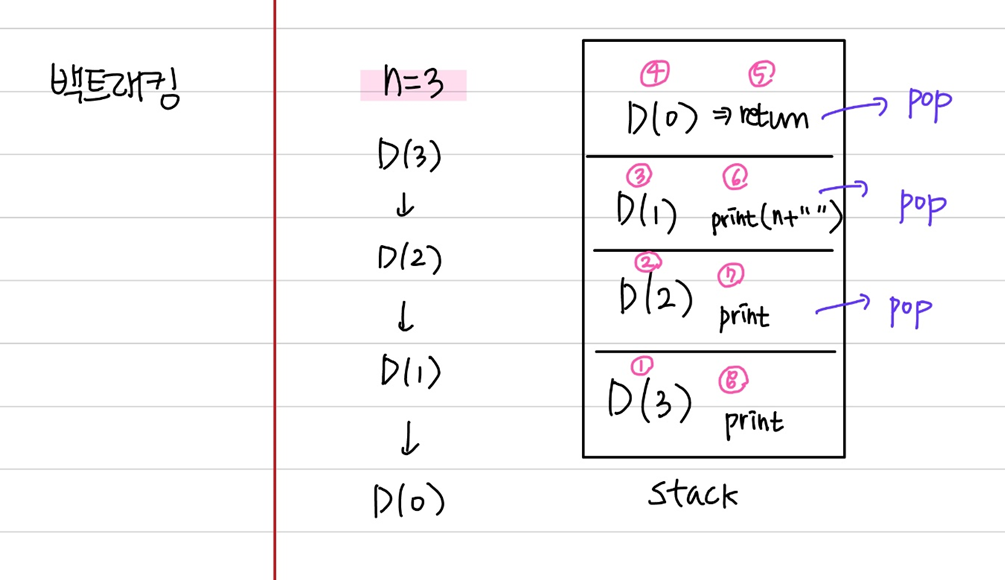 백트래킹
n=3
D(3)
↓
D(2)
↓
D(1)
↓
D(0)
④ ⑤
D(0) ⇒ return → pop
③ ⑥
D(1) print(n+" ") → pop
② ⑦
D(2) print → pop
① ⑧
D(3) print
stack